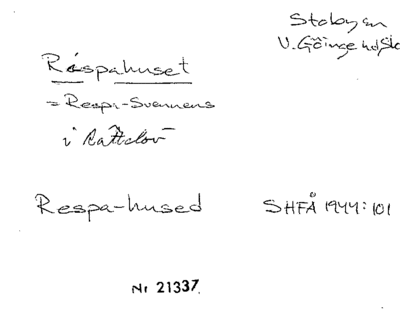 Stoby sn
V. Göinge hd, Sk
Råspahuset
= Respa-Svennens
i Rättelöv
Respa-hused
SHFÅ 1944:101
Nr 21337.